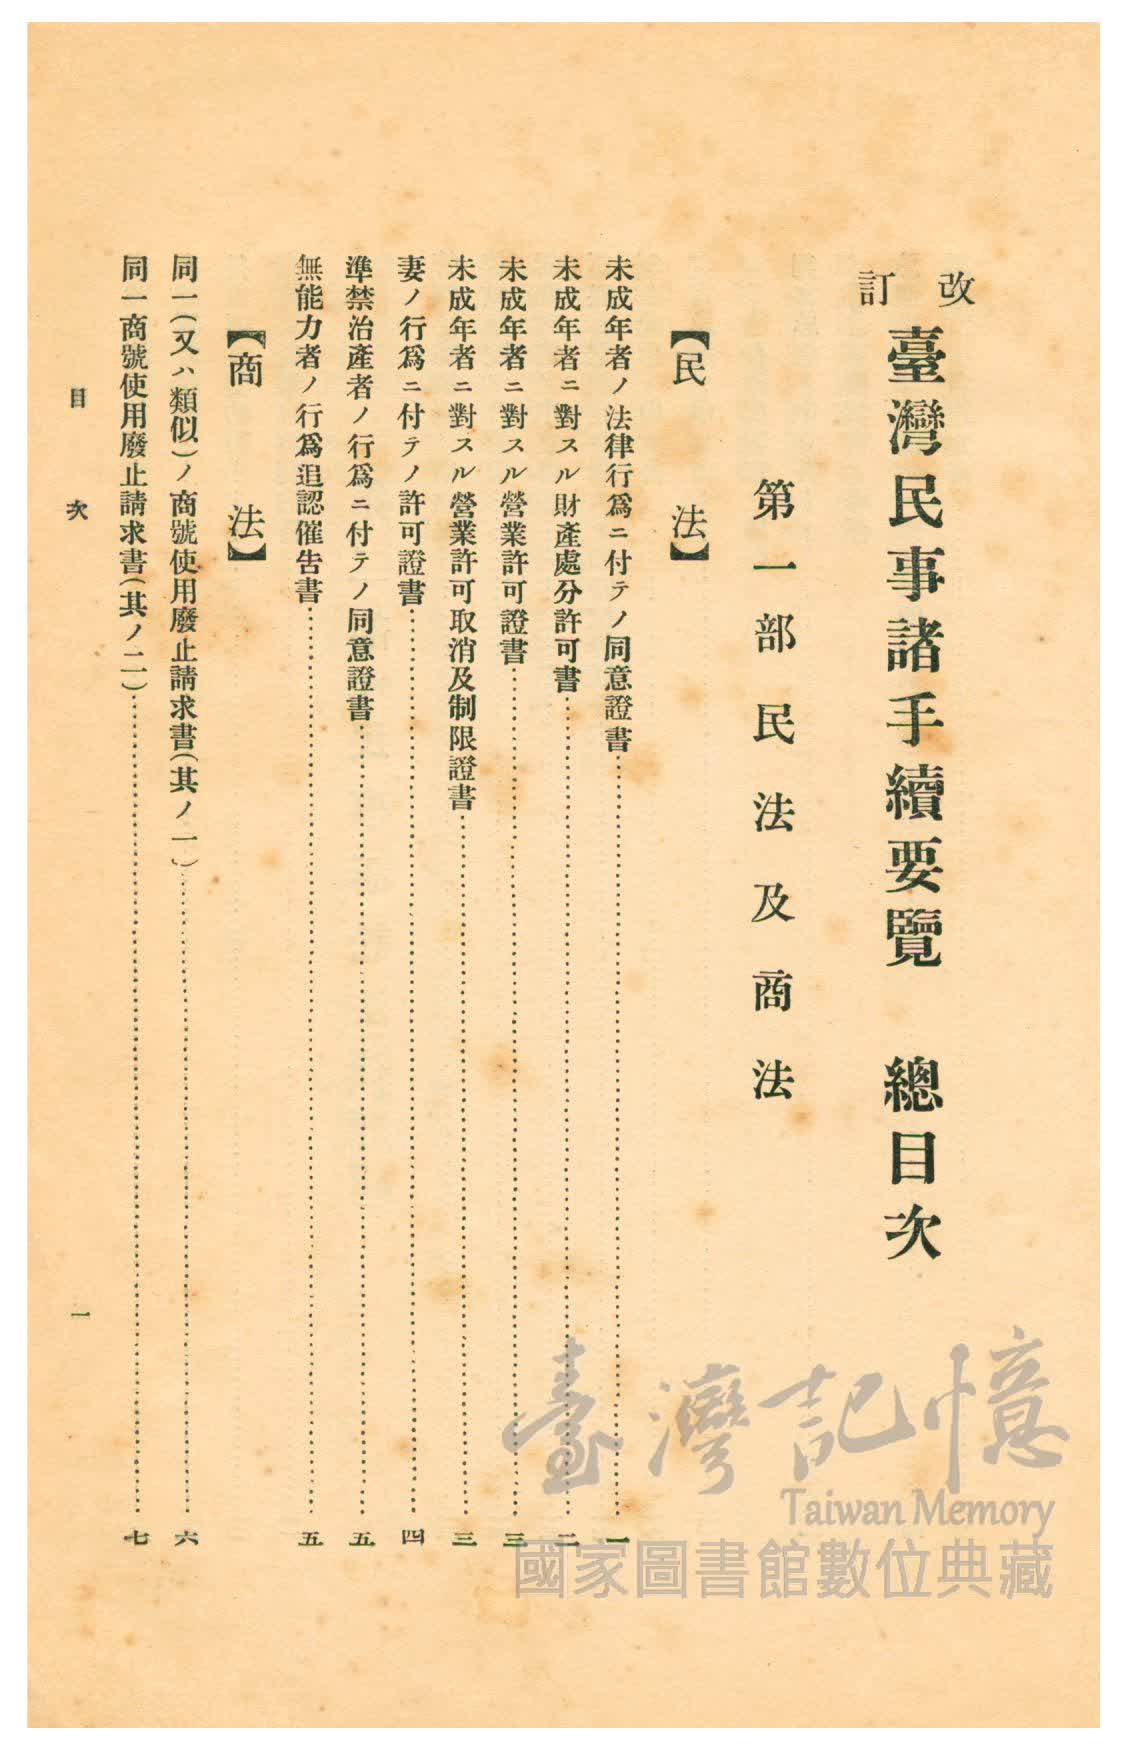 改訂
臺灣民事諸手續要覽 總目次
第一部民法及商法
【民法】
未成年者ノ法律行爲ニ付テノ同意證書…………一
未成年者ニ對スル財產處分許可書…………二
未成年者ニ對スル營業許可證書…………三
未成年者ニ對スル營業許可取消及制限證書…………三
妻ノ行爲ニ付テノ許可證書…………四
準禁治產者ノ行爲ニ付テノ同意證書…………五
無能力者ノ行爲追認催告書…………五
【商法】
同一(又ハ類似)ノ商號使用廢止請求書(其ノ一)…………六
同一商號使用廢止請求書(其ノ二)…………七
目次
一
臺灣記憶
Taiwan Memory
國家圖書館數位典藏